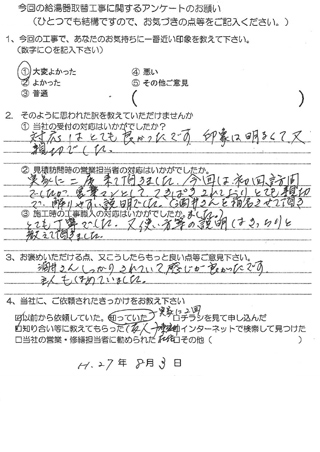 今回の給湯器取替工事に関するアンケートのお願い
(ひとつでも結構ですので、お気づきの点等をご記入ください。)
1、今回の工事で、あなたのお気持ちに一番近い印象を教えて下さい。
(数字に○を記入下さい)
①大変よかった ④悪い
②よかった ⑤その他ご意見
③普通 ( )
2. そのように思われた訳を教えていただけませんか
① 当社の受付の対応はいかがでしたか?
対応はとても良かったです 印象は明るくて又
親切でした。
② 見積訪問時の営業担当者の対応はいかがでしたか。
実家に二度来て頂きました。今回は初回訪問
でしたが、営業マンとして、てきぱきされており とても親切
で、解りやすい説明でした。
③ 施工時の工事職人の対応はいかがでしたか。
とても丁寧でした。又使い方等の説明はきっちりと
教えて頂きました。
3、お褒めいただける点、又こうしたらもっと良い点等ご意見下さい。
しっかりされていて感じが良かったです。
主人もほめていました。
4、当社に、ご依頼されたきっかけをお教え下さい
☑以前から依頼していた。知っていた 実家に2回 □チラシを見て申し込んだ
□知り合い等に教えてもらった(友人) □インターネットで検索して見つけた
□当社の営業・修繕担当者に勧められた □その他( )
H.27年 8月 3日